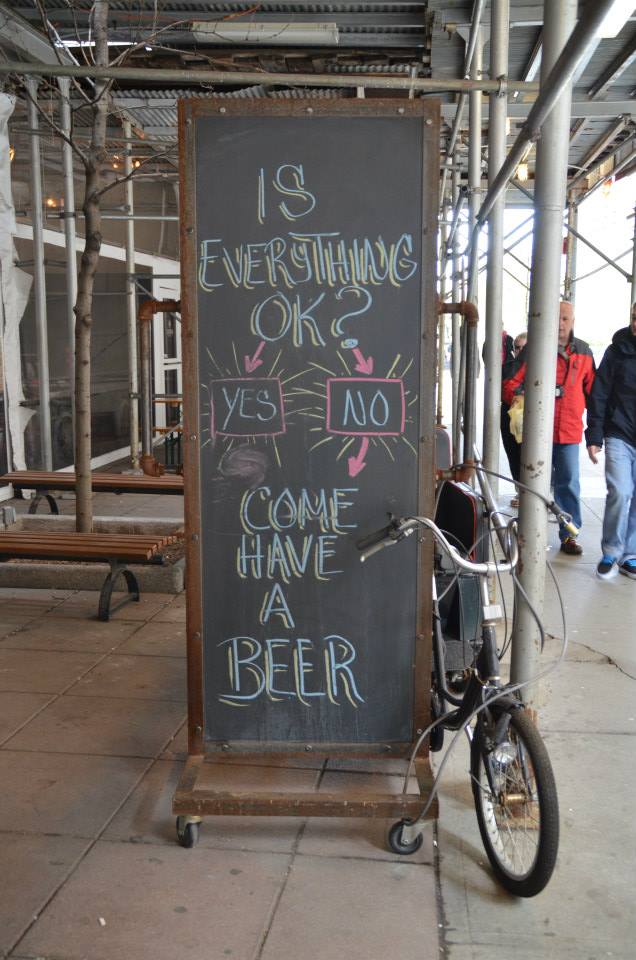 IS
EVERYTHING
OK?
YES NO
COME
HAVE
A
BEER